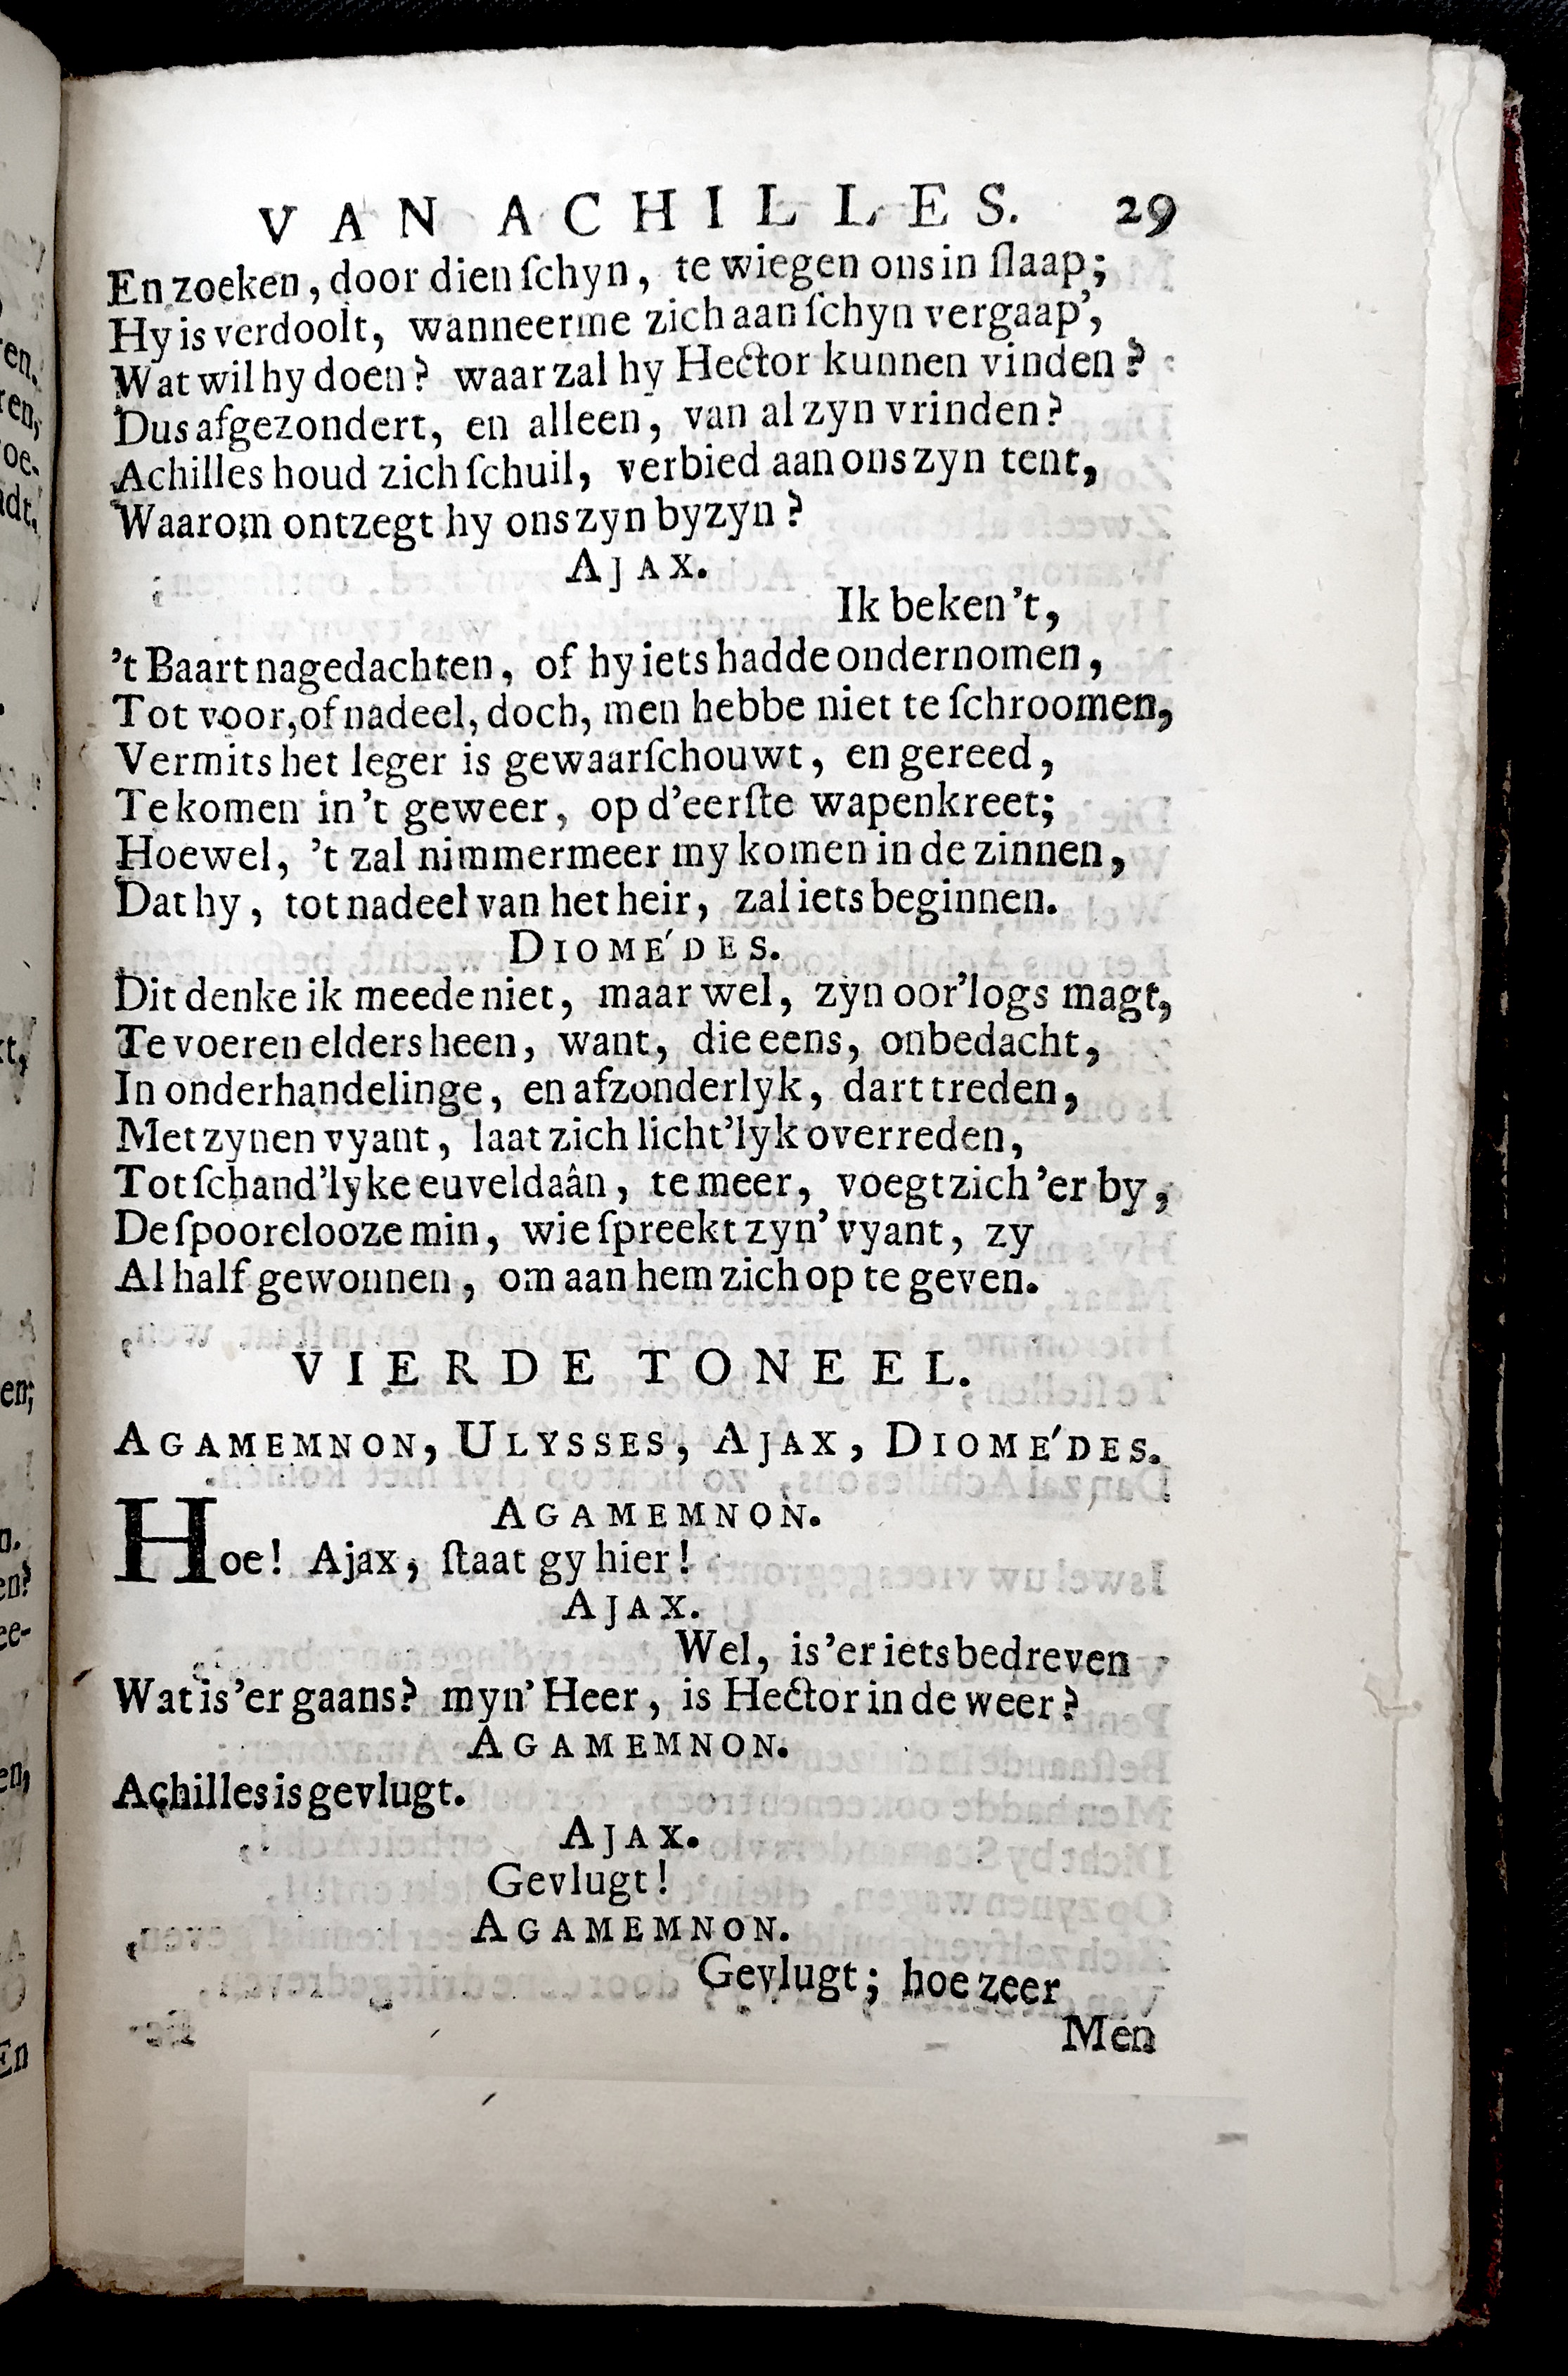 VAN ACHILLES. 29
En zoeken, door dien ſchyn, te wiegen ons in ſlaap;
Hy is verdoolt, wanneer me zich aan ſchyn vergaap',
Wat wil hy doen? waar zal hy Hector kunnen vinden?
Dus afgezondert, en alleen, van al zyn vrinden?
Achilles houd zich ſchuil, verbied aan ons zyn tent,
Waarom ontzegt hy ons zyn byzyn?
AJAX.
Ik beken't,
't Baart nagedachten, of hy iets hadde ondernomen,
Tot voor, of nadeel, doch, men hebbe niet te ſchroomen,
Vermits het leger is gewaarſchouwt, en gereed,
Te komen in't geweer, op d'eerſte wapenkreet;
Hoewel, 't zal nimmermeer my komen in de zinnen,
Dat hy, tot nadeel van het heir, zal iets beginnen.
DIOMÉDES.
Dit denke ik meede niet, maar wel, zyn oor'logs magt,
Te voeren elders heen, want, die eens, onbedacht,
In onderhandelinge, en afzonderlyk, dart treden,
Met zynen vyant, laat zich licht'lyk overreden,
Tot ſchand'lyke euveldaân, te meer, voegt zich 'er by,
De ſpoorelooze min, wie ſpreekt zyn' vyant, zy
Al half gewonnen, om aan hem zich op te geven.
VIERDE TONEEL.
AGAMEMNON, ULYSSES, AJAX, DIOMÉDES.
AGAMEMNON.
Hoe! Ajax, ſtaat gy hier!
AJAX.
Wel, is 'er iets bedreven
Wat is 'er gaans? myn' Heer, is Hector in de weer?
AGAMEMNON.
Achilles is gevlugt.
AJAX.
Gevlugt!
AGAMEMNON.
Gevlugt; hoe zeer
Men